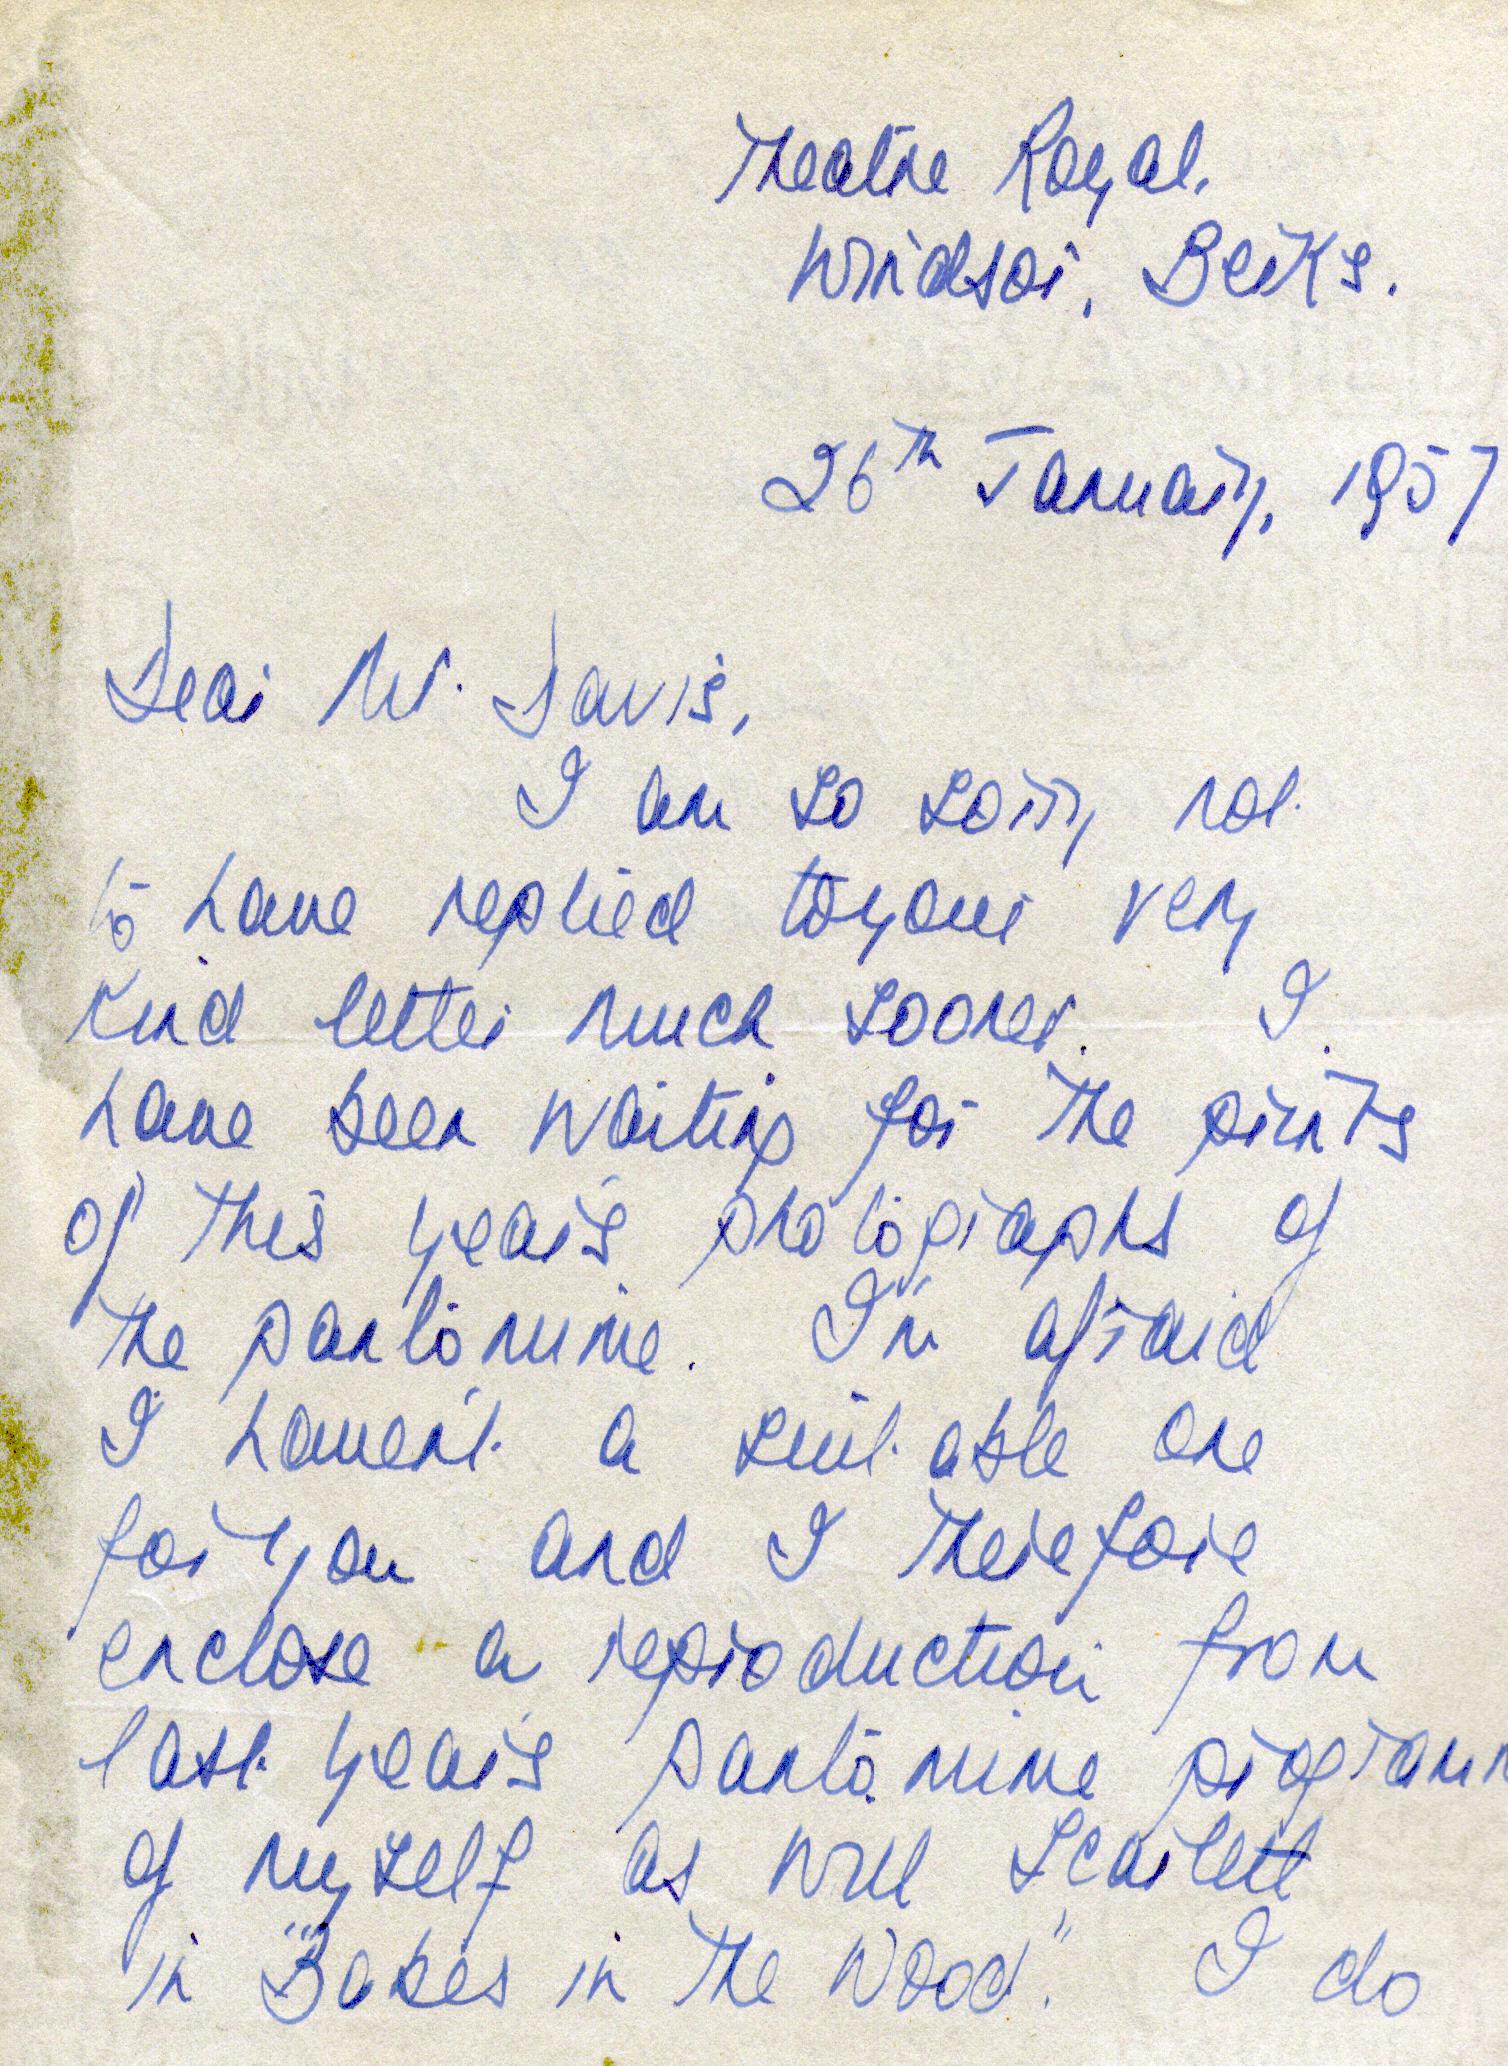 Theatre Royal.
Windsor, Berks.
26th January, 1957
Dear Mr. Davis,
I am so sorry not
to have replied to your very
kind letter much sooner. I
have been waiting for the prints
of this year's photographs of
the pantomime. I'm afraid
I haven't a suitable one
for you and I therefore
enclose a reproduction from
last year's pantomime programm
of myself as Will Scarlett
in "Babes in the Wood." I do